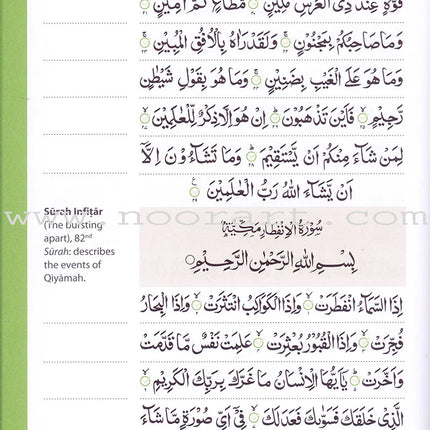 قُوَّةٍ عِنْدَ ذِى الْعَرْشِ مَكِيْنٍ ۝٢٠ مُّطَاعٍ ثَمَّ اَمِيْنٍ ۝٢١
وَمَا صَاحِبُكُمْ بِمَجْنُوْنٍ ۝٢٢ وَلَقَدْ رَاٰهُ بِالْاُفُقِ الْمُبِيْنِ ۝٢٣
وَمَا هُوَ عَلَى الْغَيْبِ بِضَنِيْنٍ ۝٢٤ وَمَا هُوَ بِقَوْلِ شَيْطٰنٍ
رَّجِيْمٍ ۝٢٥ فَاَيْنَ تَذْهَبُوْنَ ۝٢٦ اِنْ هُوَ اِلَّا ذِكْرٌ لِّلْعٰلَمِيْنَ ۝٢٧
لِمَنْ شَآءَ مِنْكُمْ اَنْ يَّسْتَقِيْمَ ۝٢٨ وَمَا تَشَآءُوْنَ اِلَّآ
اَنْ يَّشَآءَ اللّٰهُ رَبُّ الْعٰلَمِيْنَ ۝٢٩
Sūrah Infiṭār
(The bursting
apart), 82nd
Sūrah: describes
the events of
Qiyāmah.
سُوْرَةُ الْاِنْفِطَارِ مَكِّيَّةٌ
بِسْمِ اللّٰهِ الرَّحْمٰنِ الرَّحِيْمِ
اِذَا السَّمَآءُ انْفَطَرَتْ ۝١ وَاِذَا الْكَوَاكِبُ انْتَثَرَتْ ۝٢ وَاِذَا الْبِحَارُ
فُجِّرَتْ ۝٣ وَاِذَا الْقُبُوْرُ بُعْثِرَتْ ۝٤ عَلِمَتْ نَفْسٌ مَّا قَدَّمَتْ
وَاَخَّرَتْ ۝٥ يٰٓاَيُّهَا الْاِنْسَانُ مَا غَرَّكَ بِرَبِّكَ الْكَرِيْمِ ۝٦
الَّذِىْ خَلَقَكَ فَسَوّٰىكَ فَعَدَلَكَ ۝٧ فِىْٓ اَىِّ صُوْرَةٍ مَّا شَآءَ